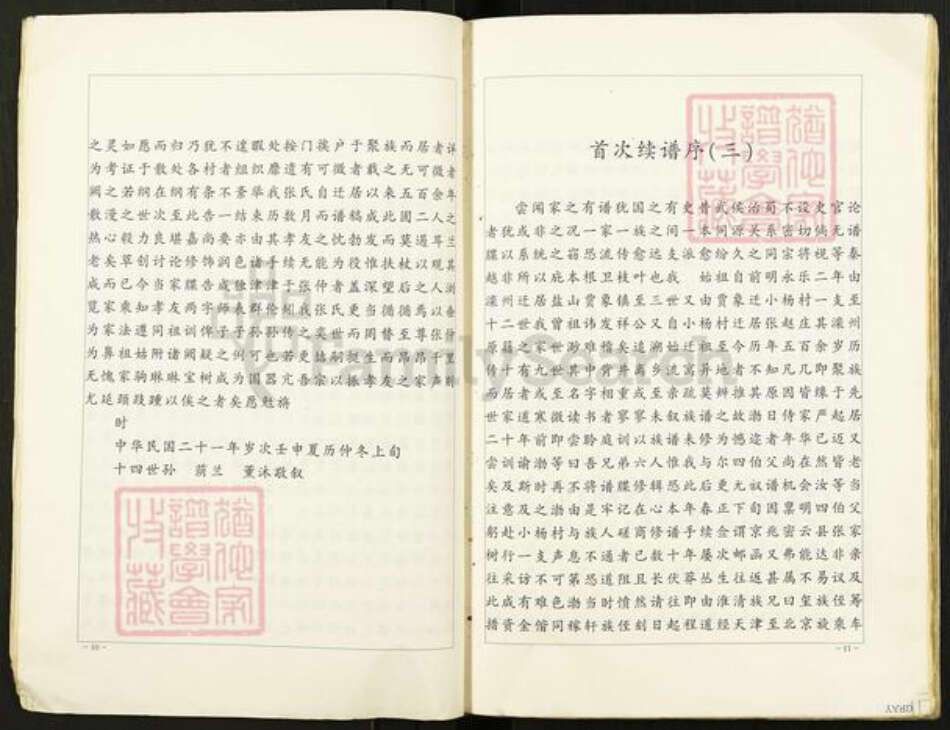 之灵如愿而归乃犹不遑暇处按门挨户于聚族而居者详
为考证于散处各村者组织靡遗有可微者载之无可微者
阙之若纲在纲有条不紊举我张氏自迁居以来五百余年
散漫之世次至此告一结束历数月而谱稿成此固二人之
热心毅力良堪嘉尚要亦由其孝友之忱勃发而莫遏耳兰
老矣草创讨论修饰润色诸手续无能为役惟扶杖以观其
成而已今当家牒告成独津津于张仲者盖深望后之人浏
览家乘知孝友两字师表群伦绍我张氏更当循循焉以垂
为家法遵同祖训俾子子孙孙传之奕世而罔替至尊张仲
为鼻祖姑附诸阙疑之例可也若更嫡嗣挺生而昂昂千里
无愧家驹琳琳宝树成为国器亢吾宗以振孝友之家声燃
尤延颈跂踵以俟之者矣愿勉旃
时
中华民国二十一年岁次壬申夏历仲冬上旬
十四世孙 荫兰 薰沐敬叙
-10-
首次续谱序(三)
尝闻家之有谱犹国之有史昔武侯治蜀不设史官论
者犹或非之况一家一族之间一本同源关系密切倘无谱
牒以系统之窃恐流传愈远支派愈纷久之同宗将视等秦
越非所以庇本根卫枝叶也我 始祖自前明永乐二年由
滦州迁居盐山贾象镇至三世又由贾象迁小杨村一支至
十二世我曾祖讳发祥公又自小杨村迁居张赵庄其滦州
原籍之家世渺难稽矣追溯始迁祖至今历年五百余岁历
传十有九世其中背井离乡流寓异地者不知凡几即聚族
而居者或至名字相重或至亲疏莫辨推其原因皆缘于先
世家道寒微读书者寥寥未叙族谱之故渤日侍家严起居
二十年前即尝聆庭训以族谱未修为憾迄者年华已迈又
尝训谕渤等曰吾兄弟六人惟我与尔四伯父尚在然皆老
矣及斯时再不将谱牒修辑恐此后更无叙谱机会汝等当
注意及之渤由是牢记在心本年春正下旬因禀明四伯父
躬赴小杨村与族人磋商修谱手续佥谓京兆密云县张家
树行一支声息不通者已数十年屡次邮函又弗能达非亲
往采访不可第恐道阻且长伏莽丛生往返甚属不易议及
此咸有难色渤当时愤然请往即由淮清族兄曰玺族侄筹
措资金偕同稼轩族侄刻日起程道经天津至北京旋乘车
-11-